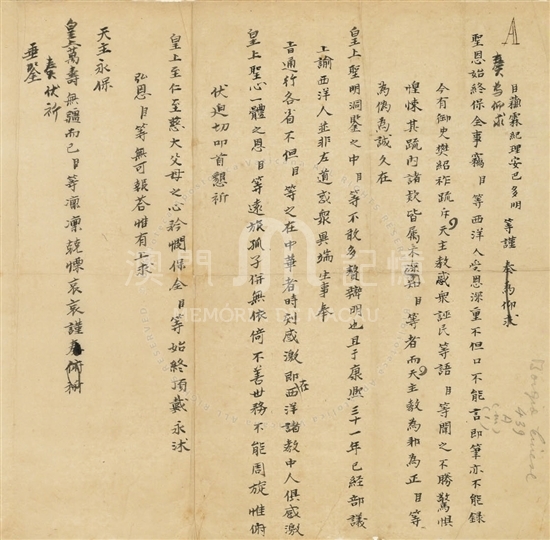 A
臣蘇霖紀理安巴多明 等謹 奏為仰求
奏為仰求
聖恩始終保全事竊 臣 等西洋人受恩深重不但口不能言即筆亦不能錄
今有御史樊紹祚疏斥天主教惑眾誣民等語 臣 等聞之不勝驚惧
惶悚其疏內諸款皆屬未深知 臣 等者而天主教為邪為正 臣 等
為偽為誠久在
皇上聖明洞鑒之中 臣 等不敢多贅辯明也且于康熙三十一年已經部議
上諭西洋人並非左道惑眾異端生事奉
旨通行各省不但 臣 等之在中華者時刻感激即在西洋諸教中人俱感激
皇上聖心一體之恩 臣 等遠旅孤孑併無依倚不善世務不能周旋惟俯
伏迫切叩首懇祈
皇上至仁至慈大父母之心矜憫保全 臣 等始終頂戴永沐
弘恩 臣 等無可報答惟有上求
天主永保
皇上萬壽無疆而已 臣 等凜凜兢慄哀哀謹
奏伏祈
垂鑒
Borgia Cinese
439
A
澳門記憶
MEMÓRIA DE MACAU